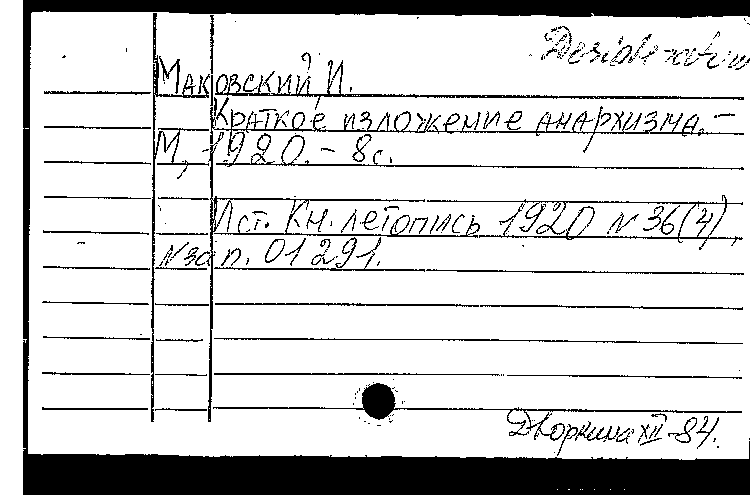 Desideratum
Маковский И.
Краткое изложение анархизма. –
М, 1920. – 8 с.
Ист. Кн. летопись 1920 N 36(4),
N зап. 01291.
Дворкина XII-84.